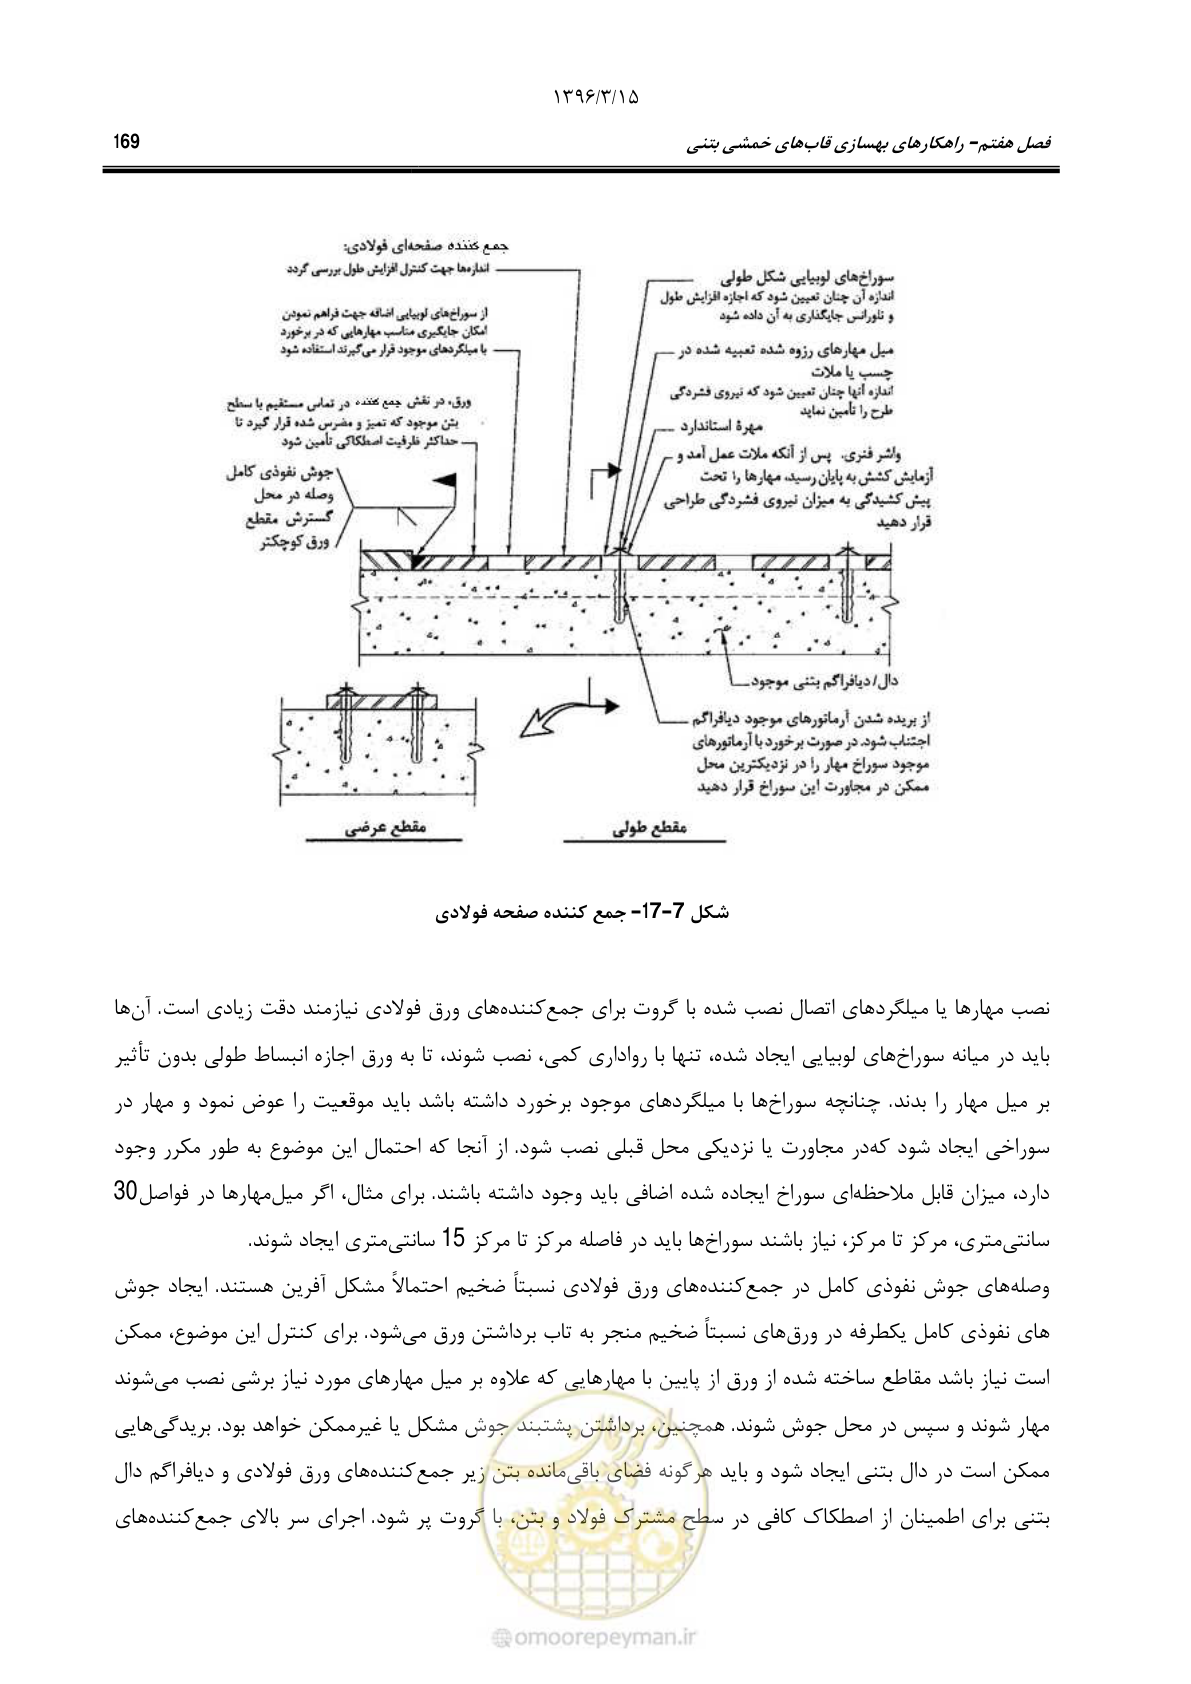 ۱۳۹۶/۳/۱۵
فصل هفتم- راهکارهای بهسازی قاب‌های خمشی بتنی
169
جمع کننده صفحه‌ای فولادی:
اندازه‌ها جهت کنترل افزایش طول بررسی گردد
از سوراخ‌های لوبیایی اضافه جهت فراهم نمودن
امکان جایگیری مناسب مهارهایی که در برخورد
با میلگردهای موجود قرار می‌گیرند استفاده شود
ورق، در نقش جمع کننده در تماس مستقیم با سطح
بتن موجود که تمیز و مضرس شده قرار گیرد تا
حداکثر ظرفیت اصطکاکی تأمین شود
جوش نفوذی کامل
وصله در محل
گسترش مقطع
ورق کوچکتر
سوراخ‌های لوبیایی شکل طولی
اندازه آن چنان تعیین شود که اجازه افزایش طول
و تلورانس جایگذاری به آن داده شود
میل مهارهای رزوه شده تعبیه شده در
چسب یا ملات
اندازه آنها چنان تعیین شود که نیروی فشردگی
طرح را تأمین نماید
مهرهٔ استاندارد
واشر فنری. پس از آنکه ملات عمل آمد و
آزمایش کشش به پایان رسید، مهارها را تحت
پیش کشیدگی به میزان نیروی فشردگی طراحی
قرار دهید
دال/دیافراگم بتنی موجود
از بریده شدن آرماتورهای موجود دیافراگم
اجتناب شود. در صورت برخورد با آرماتورهای
موجود سوراخ مهار را در نزدیکترین محل
ممکن در مجاورت این سوراخ قرار دهید
مقطع طولی
مقطع عرضی
شکل 7-17- جمع کننده صفحه فولادی
نصب مهارها یا میلگردهای اتصال نصب شده با گروت برای جمع‌کننده‌های ورق فولادی نیازمند دقت زیادی است. آن‌ها
باید در میانه سوراخ‌های لوبیایی ایجاد شده، تنها با رواداری کمی، نصب شوند، تا به ورق اجازه انبساط طولی بدون تأثیر
بر میل مهار را بدند. چنانچه سوراخ‌ها با میلگردهای موجود برخورد داشته باشد باید موقعیت را عوض نمود و مهار در
سوراخی ایجاد شود که‌در مجاورت یا نزدیکی محل قبلی نصب شود. از آنجا که احتمال این موضوع به طور مکرر وجود
دارد، میزان قابل ملاحظه‌ای سوراخ ایجاده شده اضافی باید وجود داشته باشند. برای مثال، اگر میل‌مهارها در فواصل30
سانتی‌متری، مرکز تا مرکز، نیاز باشند سوراخ‌ها باید در فاصله مرکز تا مرکز 15 سانتی‌متری ایجاد شوند.
وصله‌های جوش نفوذی کامل در جمع‌کننده‌های ورق فولادی نسبتاً ضخیم احتمالاً مشکل آفرین هستند. ایجاد جوش
های نفوذی کامل یکطرفه در ورق‌های نسبتاً ضخیم منجر به تاب برداشتن ورق می‌شود. برای کنترل این موضوع، ممکن
است نیاز باشد مقاطع ساخته شده از ورق از پایین با مهارهایی که علاوه بر میل مهارهای مورد نیاز برشی نصب می‌شوند
مهار شوند و سپس در محل جوش شوند. همچنین، برداشتن پشتبند جوش مشکل یا غیرممکن خواهد بود. بریدگی‌هایی
ممکن است در دال بتنی ایجاد شود و باید هرگونه فضای باقی‌مانده بتن زیر جمع‌کننده‌های ورق فولادی و دیافراگم دال
بتنی برای اطمینان از اصطکاک کافی در سطح مشترک فولاد و بتن، با گروت پر شود. اجرای سر بالای جمع‌کننده‌های
امور پیمان
@omoorepeyman.ir